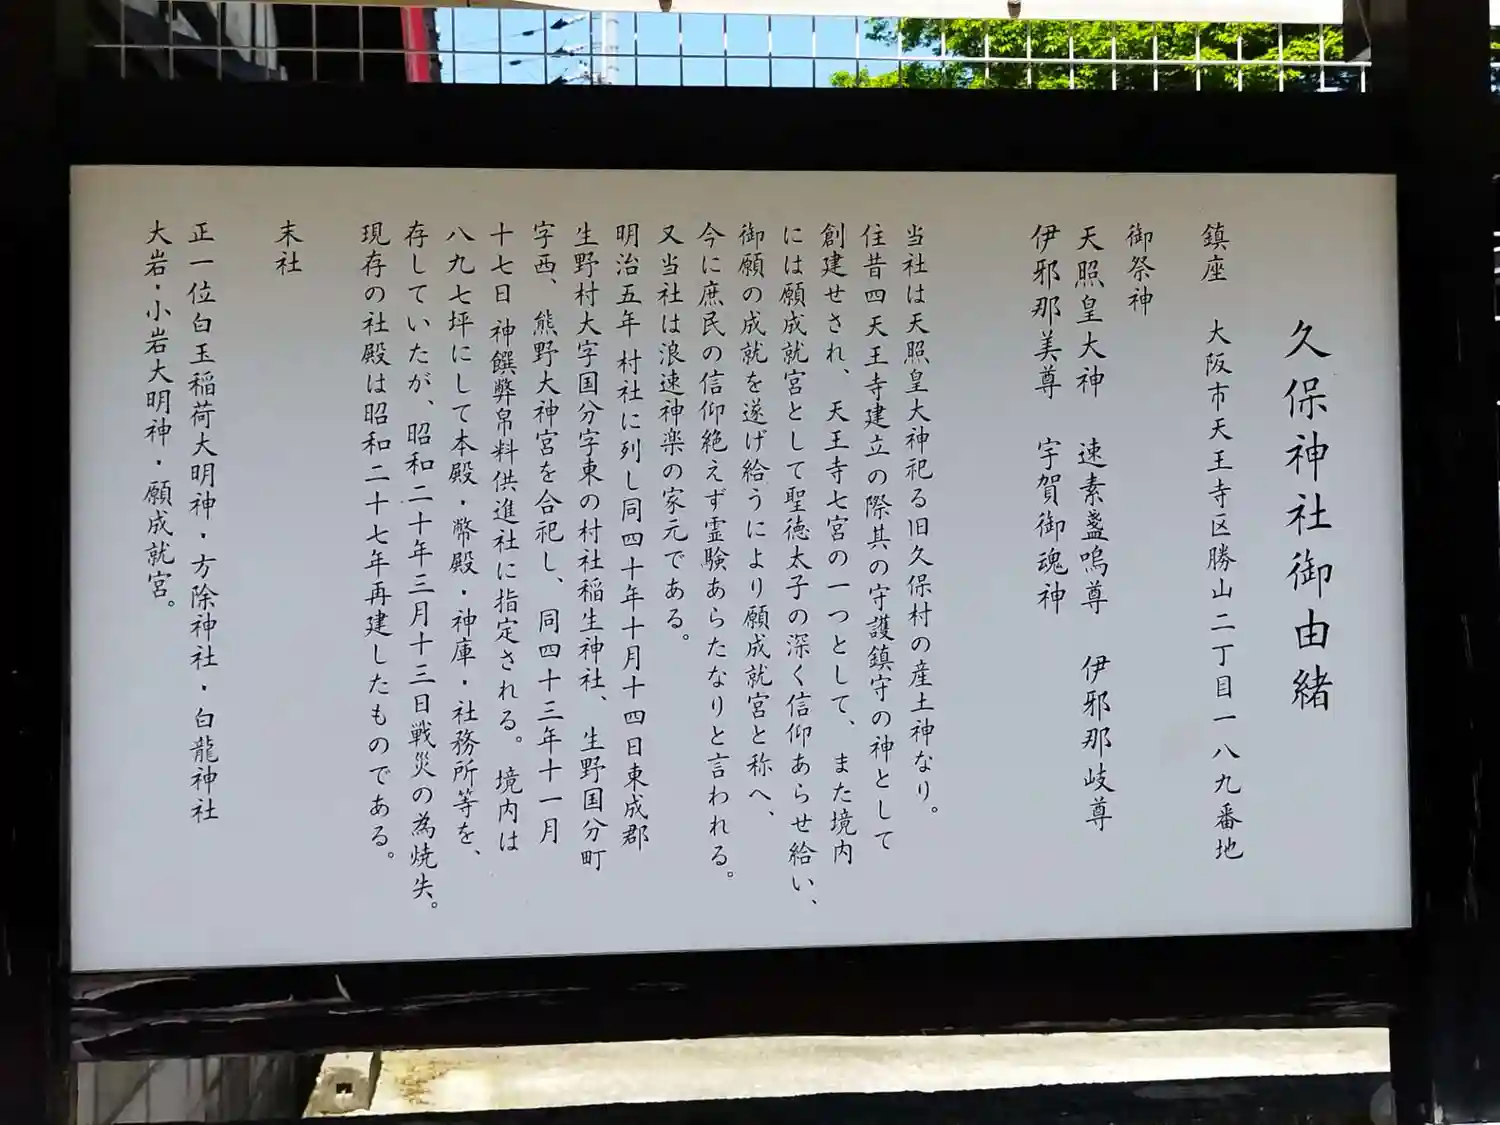 久保神社御由緒
鎮座　大阪市天王寺区勝山二丁目一八九番地
御祭神
天照皇大神　速素盞嗚尊　伊邪那岐尊
伊邪那美尊　宇賀御魂神
当社は天照皇大神祀る旧久保村の産土神なり。
住昔四天王寺建立の際其の守護鎮守の神として
創建せされ、天王寺七宮の一つとして、また境内
には願成就宮として聖徳太子の深く信仰あらせ給い、
御願の成就を遂げ給うにより願成就宮と称へ、
今に庶民の信仰絶えず霊験あらたなりと言われる。
又当社は浪速神楽の家元である。
明治五年 村社に列し同四十年十月十四日東成郡
生野村大字国分字東の村社稲生神社、生野国分町
字西、熊野大神宮を合祀し、同四十三年十一月
十七日 神饌弊帛料供進社に指定される。境内は
八九七坪にして本殿・幣殿・神庫・社務所等を、
存していたが、昭和二十年三月十三日戦災の為焼失。
現存の社殿は昭和二十七年再建したものである。
末社
正一位白玉稲荷大明神・方除神社・白龍神社
大岩・小岩大明神・願成就宮。